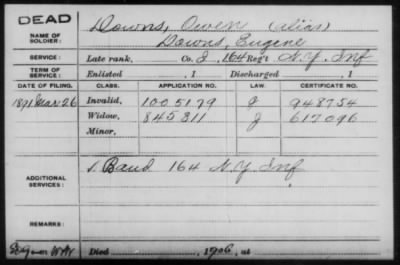 DEAD
NAME OF SOLDIER: Downs, Owen (alias)
Downs, Eugene
SERVICE: Late rank, Co. I, 164 Reg't N.Y. Inf
TERM OF SERVICE: Enlisted , 1 Discharged , 1
DATE OF FILING. CLASS. APPLICATION NO. LAW. CERTIFICATE NO.
1891 Mar 26 Invalid, 1005179 J 948754
Widow, 845311 J 617096
Minor,
ADDITIONAL SERVICES: Band 164 N.Y. Inf
REMARKS:
Died , 1906, at